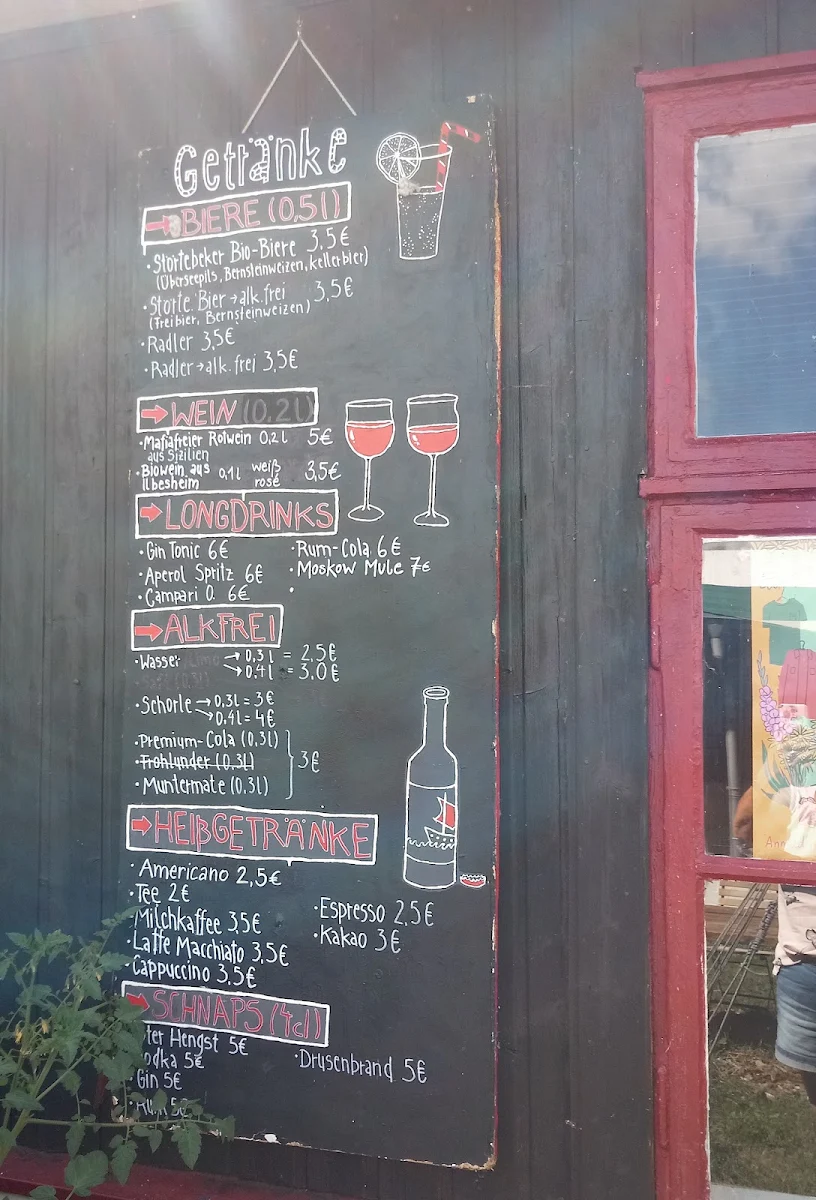 Getränke
BIERE (0,5l)
· Störtebeker Bio-Biere 3,5€
(Überseepils, Bernsteinweizen, Kellerbier)
· Störte. Bier → alk. frei 3,5€
(Freibier, Bernsteinweizen)
· Radler 3,5€
· Radler → alk. frei 3,5€
→ WEIN (0,2l)
· Mafiafreier Rotwein 0,2l 5€
aus Sizilien
· Biowein aus 0,1l weiß 3,5€
Ilbesheim rosé
→ LONGDRINKS
· Gin Tonic 6€
· Aperol Spritz 6€
· Campari O. 6€
· Rum-Cola 6€
· Moskow Mule 7€
→ ALKFREI
· Wasser → 0,3l = 2,5€
→ 0,4l = 3,0€
· Schorle → 0,3l = 3€
→ 0,4l = 4€
· Premium-Cola (0,3l)
· Frohlunder (0,3l) 3€
· Muntermate (0,3l)
→ HEIßGETRÄNKE
· Americano 2,5€
· Tee 2€
· Milchkaffee 3,5€
· Latte Macchiato 3,5€
· Cappuccino 3,5€
· Espresso 2,5€
· Kakao 3€
→ SCHNAPS (4cl)
Hengst 5€
odka 5€
· Gin 5€
· Rum 5€
· Drusenbrand 5€